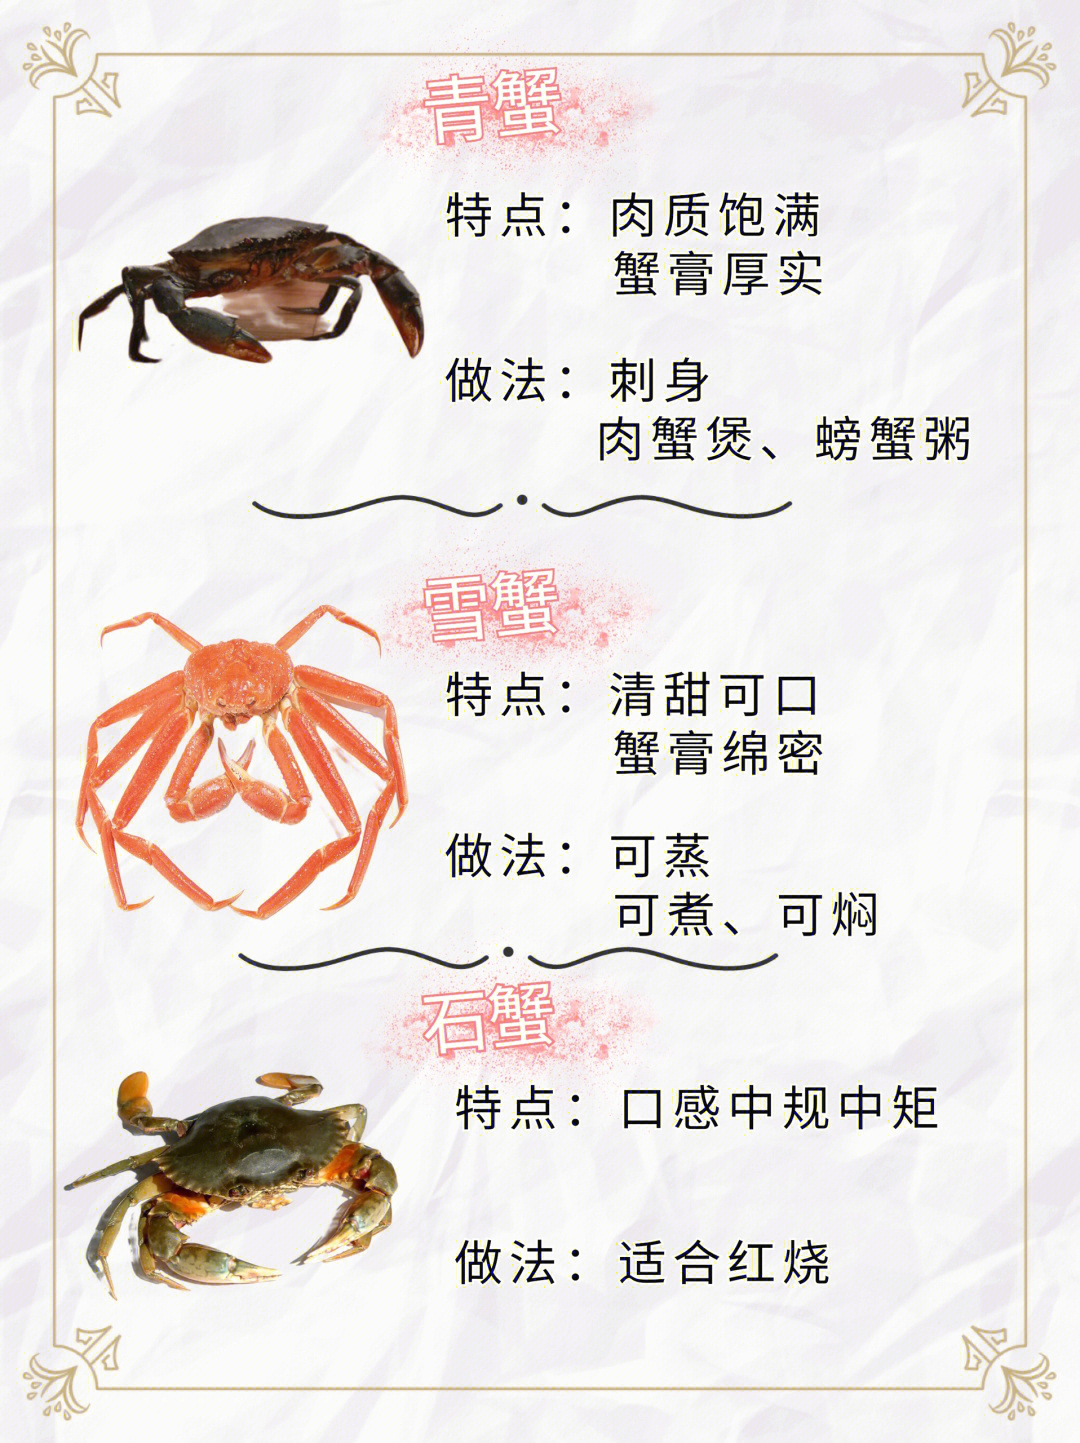 青蟹
特点：肉质饱满
蟹膏厚实
做法：刺身
肉蟹煲、螃蟹粥
雪蟹
特点：清甜可口
蟹膏绵密
做法：可蒸
可煮、可焖
石蟹
特点：口感中规中矩
做法：适合红烧